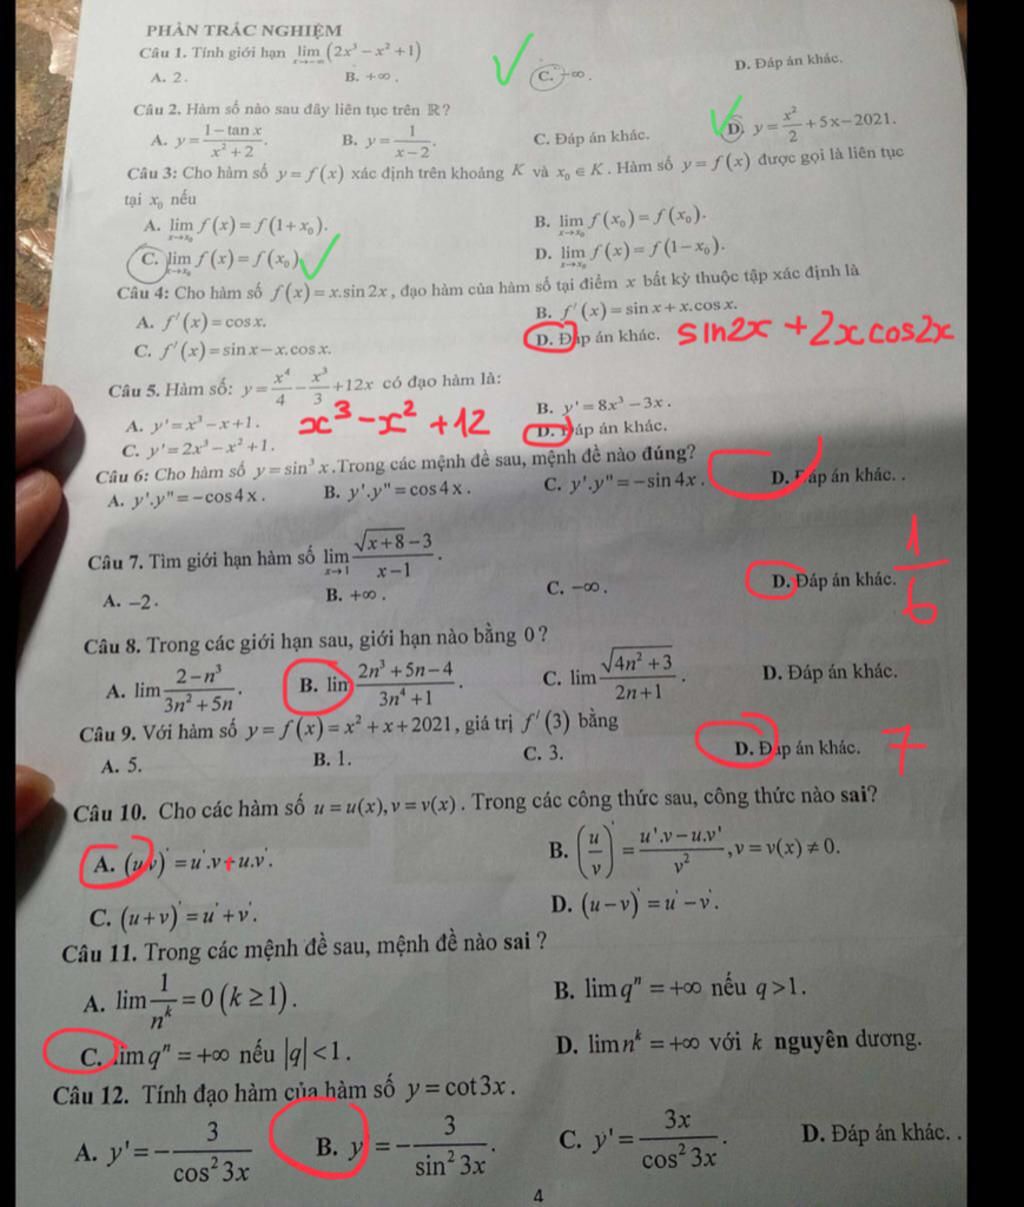 PHẦN TRẮC NGHIỆM
Câu 1. Tính giới hạn lim x→-∞ (2x³ − x² + 1)
A. 2. B. +∞. C. −∞. D. Đáp án khác.
Câu 2. Hàm số nào sau đây liên tục trên ℝ?
A. y = (1 − tan x)/(x² + 2). B. y = 1/(x − 2). C. Đáp án khác. D. y = x²/2 + 5x − 2021.
Câu 3: Cho hàm số y = f(x) xác định trên khoảng K và x₀ ∈ K. Hàm số y = f(x) được gọi là liên tục
tại x₀ nếu
A. lim x→x₀ f(x) = f(1 + x₀). B. lim x→x₀ f(x₀) = f(x₀).
C. lim x→x₀ f(x) = f(x₀) D. lim x→x₀ f(x) = f(1 − x₀).
Câu 4: Cho hàm số f(x) = x.sin 2x, đạo hàm của hàm số tại điểm x bất kỳ thuộc tập xác định là
A. f'(x) = cos x. B. f'(x) = sin x + x.cos x.
C. f'(x) = sin x − x.cos x. D. Đáp án khác. sin2x + 2x cos2x
Câu 5. Hàm số: y = x⁴/4 − x³/3 + 12x có đạo hàm là:
A. y' = x³ − x + 1. B. y' = 8x³ − 3x.
C. y' = 2x³ − x² + 1. x³ − x² + 12 D. Đáp án khác.
Câu 6: Cho hàm số y = sin³ x.Trong các mệnh đề sau, mệnh đề nào đúng?
A. y'.y" = −cos 4x. B. y'.y" = cos 4x. C. y'.y" = −sin 4x. D. Đáp án khác. .
Câu 7. Tìm giới hạn hàm số lim x→1 (√(x+8) − 3)/(x − 1).
A. −2. B. +∞. C. −∞. D. Đáp án khác. 1/6
Câu 8. Trong các giới hạn sau, giới hạn nào bằng 0?
A. lim (2 − n³)/(3n² + 5n). B. lim (2n³ + 5n − 4)/(3n⁴ + 1). C. lim √(4n² + 3)/(2n + 1). D. Đáp án khác.
Câu 9. Với hàm số y = f(x) = x² + x + 2021, giá trị f'(3) bằng
A. 5. B. 1. C. 3. D. Đáp án khác. 7
Câu 10. Cho các hàm số u = u(x), v = v(x). Trong các công thức sau, công thức nào sai?
A. (uv)' = u'.v + u.v'. B. (u/v)' = (u'.v − u.v')/v², v = v(x) ≠ 0.
C. (u + v)' = u' + v'. D. (u − v)' = u' − v'.
Câu 11. Trong các mệnh đề sau, mệnh đề nào sai ?
A. lim 1/nᵏ = 0 (k ≥ 1). B. lim qⁿ = +∞ nếu q > 1.
C. lim qⁿ = +∞ nếu |q| < 1. D. lim nᵏ = +∞ với k nguyên dương.
Câu 12. Tính đạo hàm của hàm số y = cot 3x.
A. y' = −3/(cos² 3x) B. y' = −3/(sin² 3x). C. y' = 3x/(cos² 3x). D. Đáp án khác. .
4